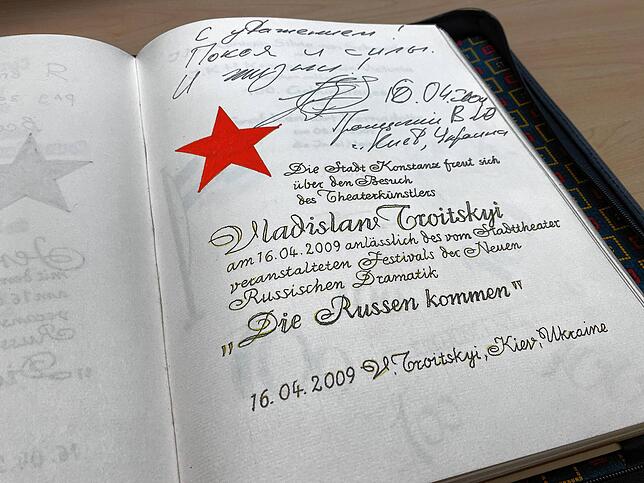 С уважением!
Покоя и силы.
И жизни!
16.04.2009
Троицкий В Ю
г. Киев, Украина
Die Stadt Konstanz freut sich
über den Besuch
des Theaterkünstlers
Vladislav Troitskyi
am 16.04.2009 anlässlich des vom Stadttheater
veranstalteten Festivals der Neuen
Russischen Dramatik
„Die Russen kommen"
16.04.2009 V. Troitskyi, Kiev, Ukraine